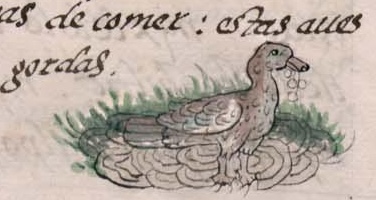 as de comer: estas aues
gordas.